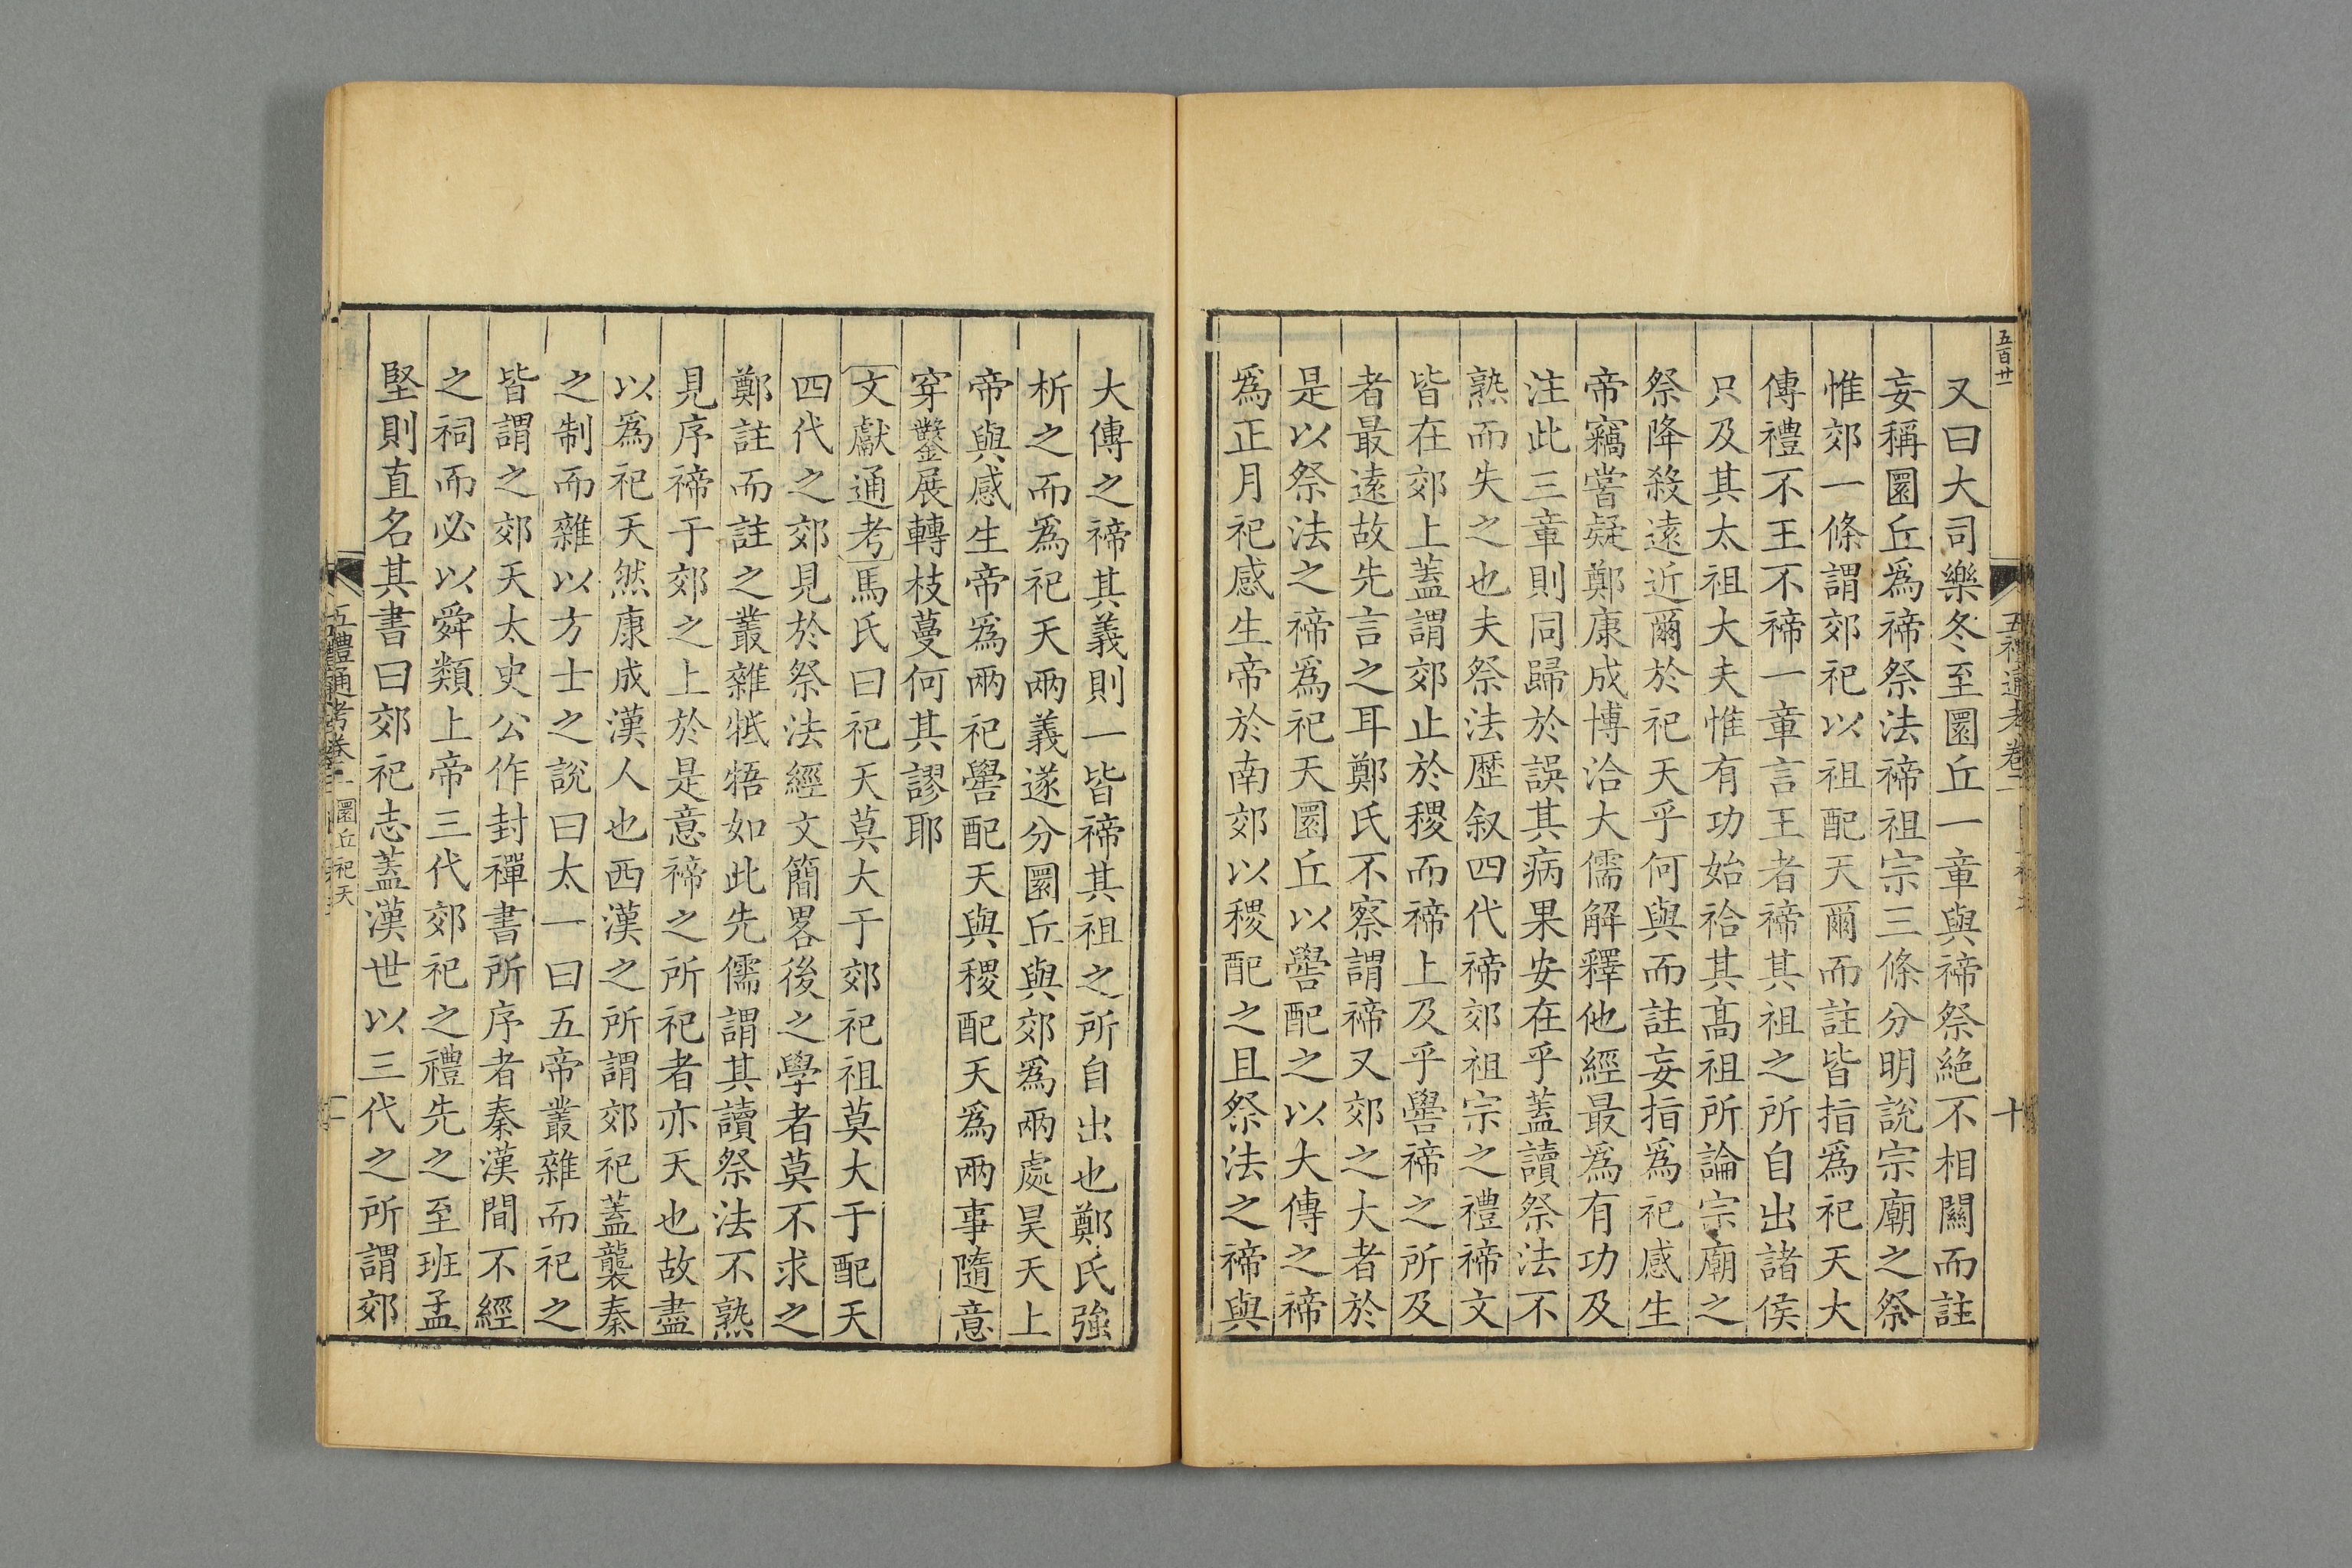 五百廿一
又曰大司樂冬至圜丘一章與禘祭絶不相關而註
妄稱圜丘爲禘祭法禘祖宗三條分明說宗廟之祭
惟郊一條謂郊祀以祖配天爾而註皆指爲祀天大
傳禮不王不禘一章言王者禘其祖之所自出諸侯
只及其太祖大夫惟有功始祫其高祖所論宗廟之
祭降殺遠近爾於祀天乎何與而註妄指爲祀感生
帝竊嘗疑鄭康成博洽大儒解釋他經最爲有功及
注此三章則同歸於誤其病果安在乎蓋讀祭法不
熟而失之也夫祭法歷叙四代禘郊祖宗之禮禘文
皆在郊上蓋謂郊止於稷而禘上及乎嚳禘之所及
者最遠故先言之耳鄭氏不察謂禘又郊之大者於
是以祭法之禘爲祀天圜丘以嚳配之以大傳之禘
爲正月祀感生帝於南郊以稷配之且祭法之禘與
五禮通考卷一
十
大傳之禘其義則一皆禘其祖之所自出也鄭氏強
析之而爲祀天兩義遂分圜丘與郊爲兩處昊天上
帝與感生帝爲兩祀嚳配天與稷配天爲兩事隨意
穿鑿展轉枝蔓何其謬耶
文獻通考馬氏曰祀天莫大于郊祀祖莫大于配天
四代之郊見於祭法經文簡畧後之學者莫不求之
鄭註而註之叢雜牴牾如此先儒謂其讀祭法不熟
見序禘于郊之上於是意禘之所祀者亦天也故盡
以爲祀天然康成漢人也西漢之所謂郊祀蓋襲秦
之制而雜以方士之說曰太一曰五帝叢雜而祀之
皆謂之郊天太史公作封禪書所序者秦漢間不經
之祠而必以舜類上帝三代郊祀之禮先之至班孟
堅則直名其書曰郊祀志蓋漢世以三代之所謂郊
五禮通考卷一 圜丘祀天